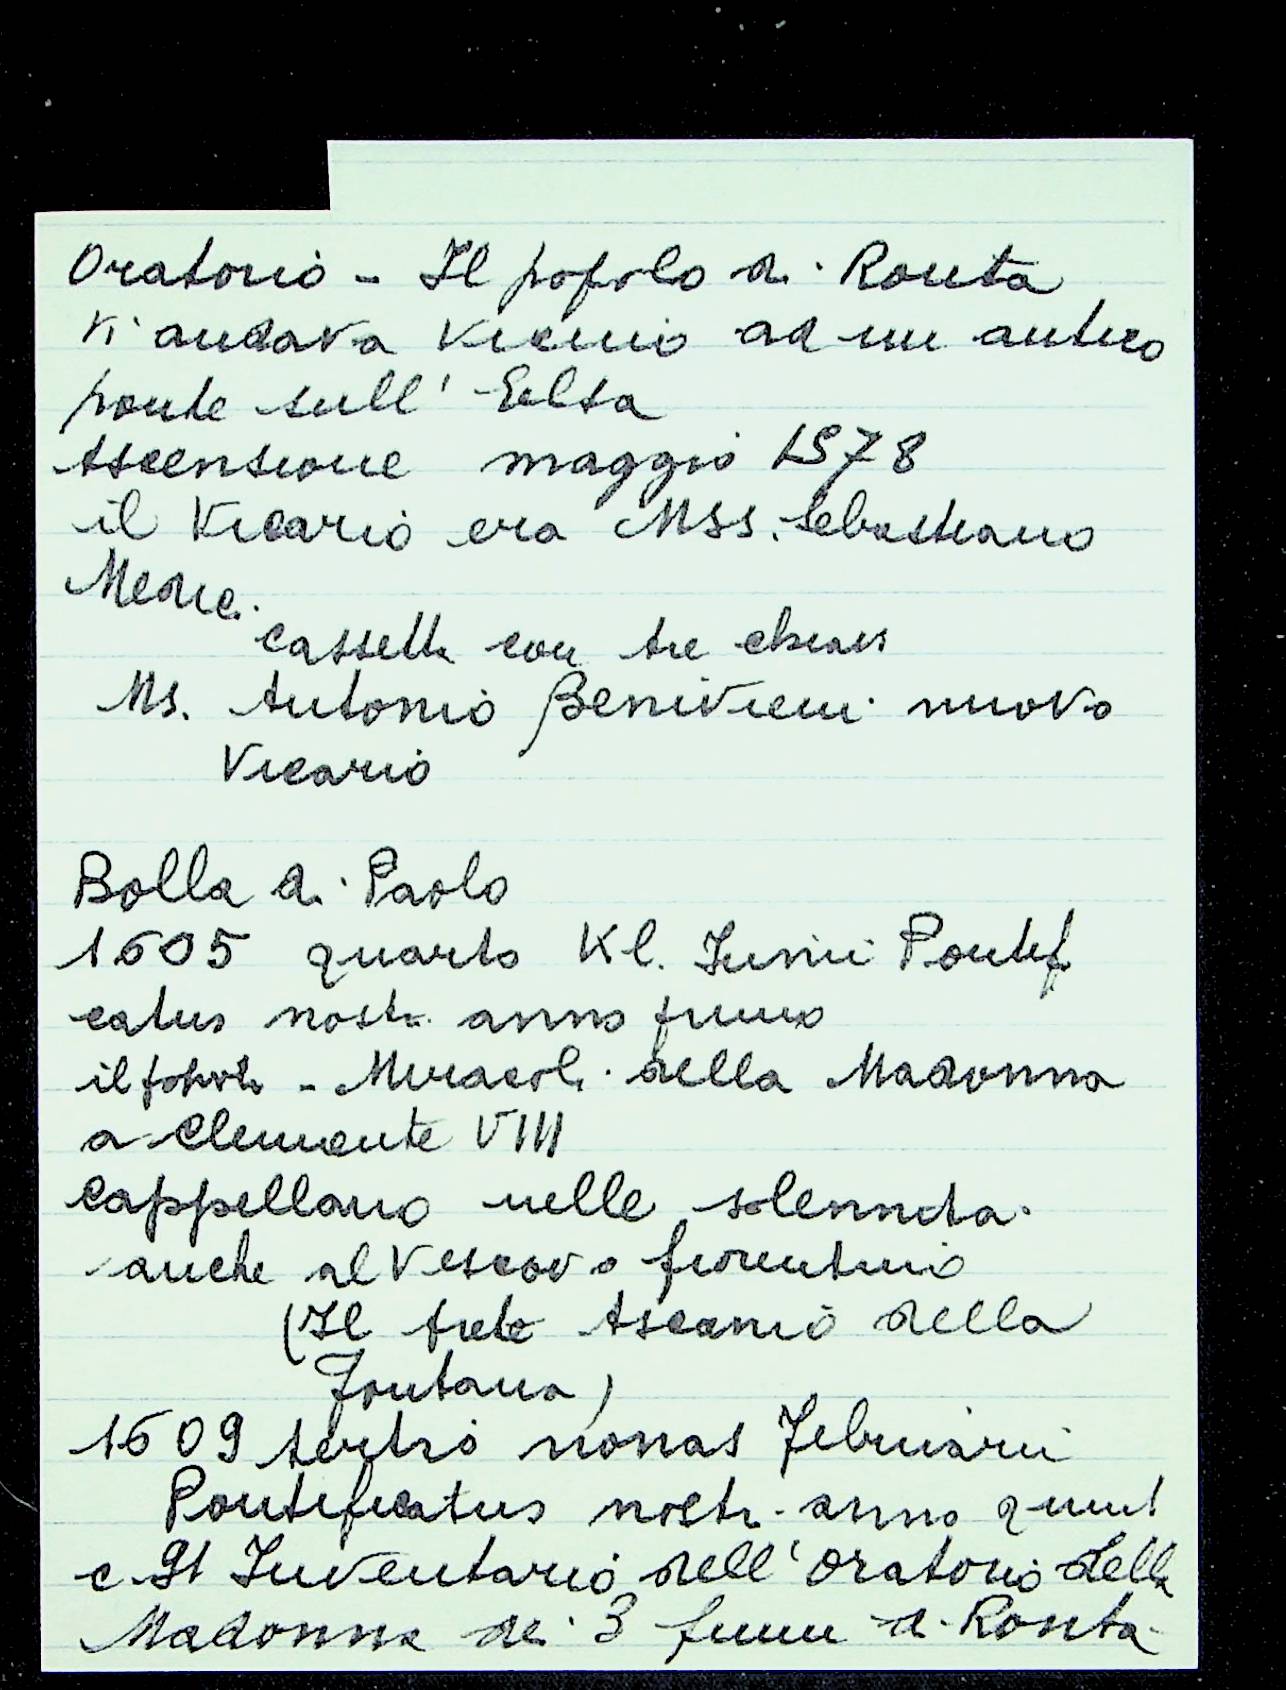 Oratorio - Il popolo di Ronta
vi andava vicino ad un antico
ponte sull' Elsa
Ascensione maggio 1578
il Vicario era MSS. Sebastiano
Medici
cassetta con tre chiavi
Ms. Antonio Benivieni nuovo
Vicario
Bolla di Paolo
1605 quarto Kl. Junii Pontif
catus nostri anno primo
il popolo - Miracoli della Madonna
a Clemente VIII
cappellano nelle solennità
anche al Vescovo fiorentino
(Il frate Ascanio della
Fontana)
1609 tertio nonas Februarii
Pontificatus nostri anno quint
c 91 Inventario dell' Oratorio della
Madonna dei 3 fiumi di Ronta